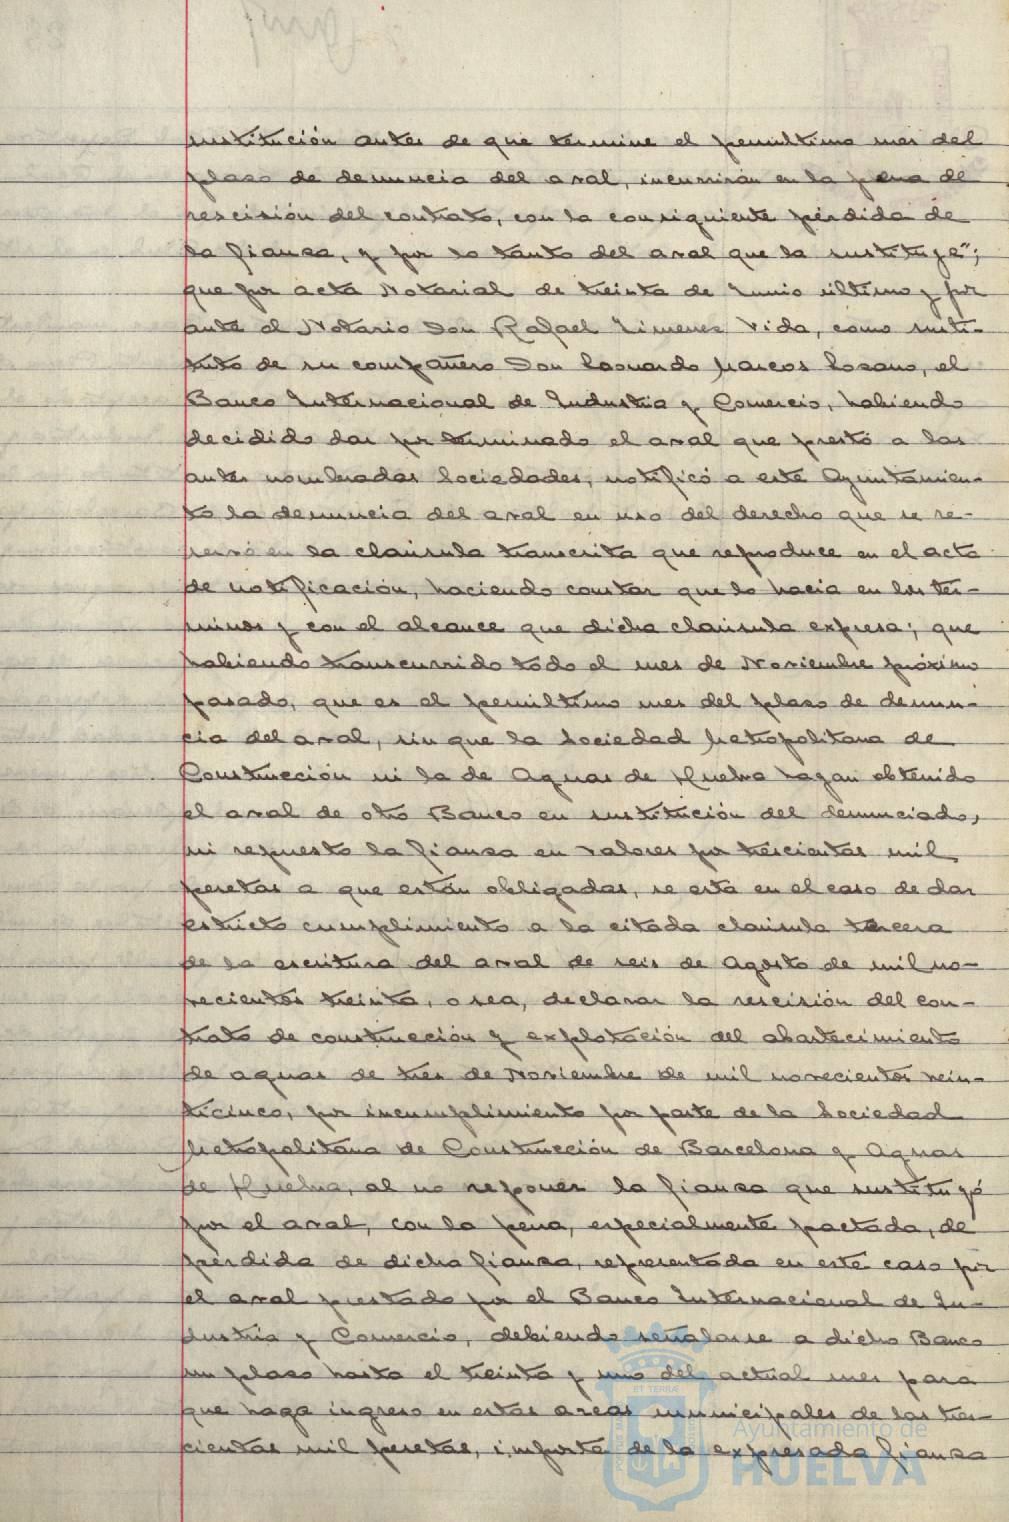 sustitución antes de que termine el penúltimo mes del
plaso de denuncia del aval, incurrirán en la pena de
rescisión del contrato, con la consiguiente pérdida de
la fiansa, y por lo tanto del aval que la sustituye";
que por acta Notarial de treinta de Junio último y por
ante el Notario Don Rafael Jimenez Vida, como susti-
tuto de su compañero Don Leonardo Marcos Losano, el
Banco Internacional de Industria y Comercio, habiendo
decidido dar por terminado el aval que prestó a las
antes nombradas Sociedades, notificó a este Ayuntamien-
to la denuncia del aval en uso del derecho que se re-
servó en la claúsula transcrita que reproduce en el acta
de notificación, haciendo constar que lo hacía en los tér-
minos y con el alcance que dicha claúsula expresa; que
habiendo transcurrido todo el mes de Noviembre próximo
pasado, que es el penúltimo mes del plaso de denun-
cia del aval, sin que la Sociedad Metropolitana de
Construcción ni la de Aguas de Huelva hayan obtenido
el aval de otro Banco en sustitución del denunciado,
ni repuesto la fiansa en valores por trescientas mil
pesetas a que están obligadas, se está en el caso de dar
estricto cumplimiento a la citada claúsula tercera
de la escritura del aval de seis de Agosto de mil no-
vecientos treinta, o sea, declarar la rescisión del con-
trato de construcción y explotación del abastecimiento
de aguas de tres de Noviembre de mil novecientos vein-
ticinco, por incumplimiento por parte de la Sociedad
Metropolitana de Construcción de Barcelona y Aguas
de Huelva, al no reponer la fiansa que sustituyó
por el aval, con la pena, especialmente pactada, de
pérdida de dicha fiansa, representada en este caso por
el aval prestado por el Banco Internacional de In-
dustria y Comercio, debiendo señalarse a dicho Banco
un plaso hasta el treinta y uno del actual mes para
que haga ingreso en estas arcas municipales de las tres-
cientas mil pesetas, importe de la expresada fiansa
Ayuntamiento de
HUELVA